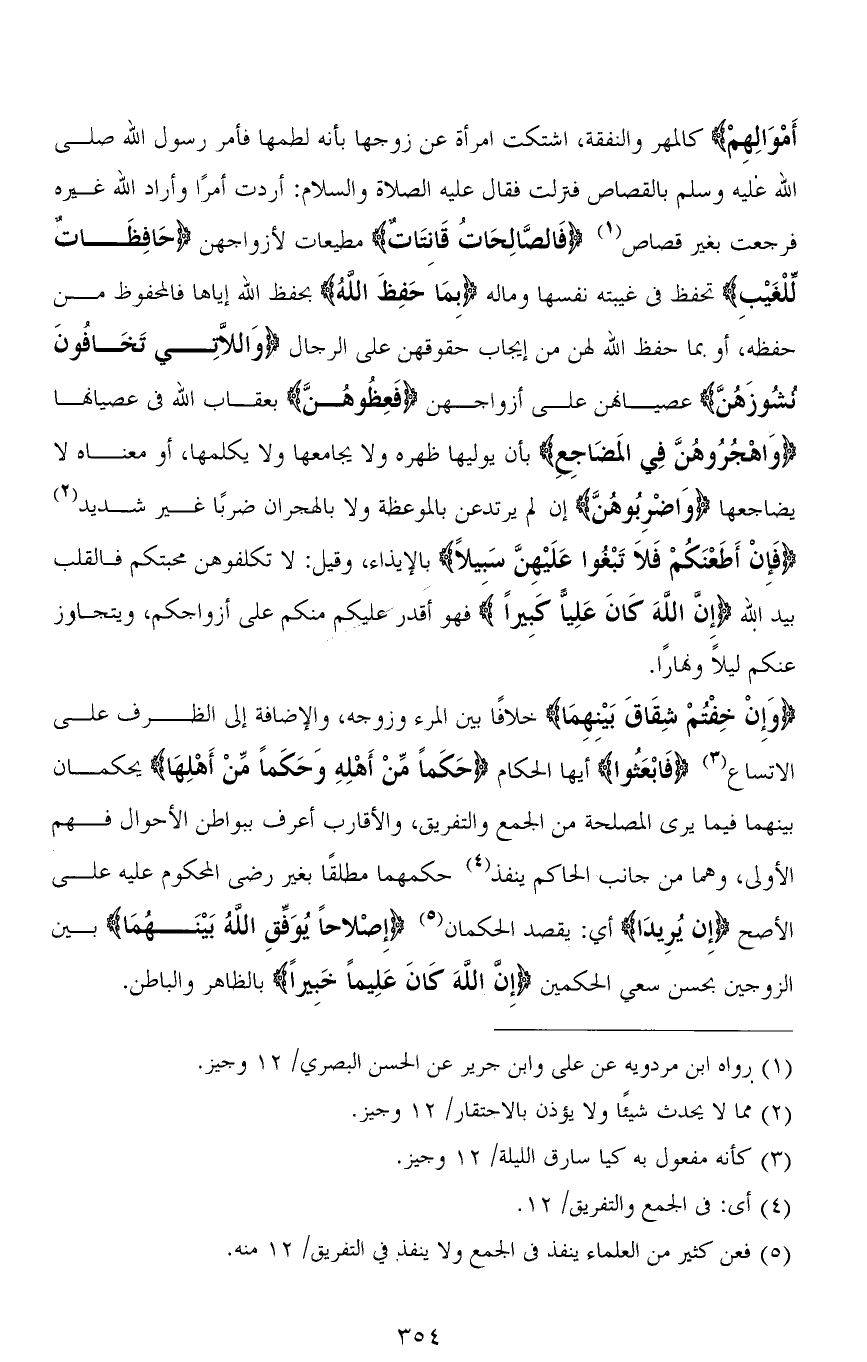 أَمْوَالِهِمْ﴾ كالمهر والنفقة، اشتكت امرأة عن زوجها بأنه لطمها فأمر رسول الله صلى
الله عليه وسلم بالقصاص فنزلت فقال عليه الصلاة والسلام: أردت أمرًا وأراد الله غيره
فرجعت بغير قصاص(١) ﴿فَالصَّالِحَاتُ قَانِتَاتٌ﴾ مطيعات لأزواجهن ﴿حَافِظَاتٌ
لِّلْغَيْبِ﴾ تحفظ فى غيبته نفسها وماله ﴿بِمَا حَفِظَ اللَّهُ﴾ بحفظ الله إياها فالمحفوظ من
حفظه، أو بما حفظ الله لهن من إيجاب حقوقهن على الرجال ﴿وَاللاَّتِي تَخَافُونَ
نُشُوزَهُنَّ﴾ عصيانهن على أزواجهن ﴿فَعِظُوهُنَّ﴾ بعقاب الله فى عصيانها
﴿وَاهْجُرُوهُنَّ فِي المَضَاجِعِ﴾ بأن يوليها ظهره ولا يجامعها ولا يكلمها، أو معناه لا
يضاجعها ﴿وَاضْرِبُوهُنَّ﴾ إن لم يرتدعن بالموعظة ولا بالهجران ضربًا غير شديد(٢)
﴿فَإِنْ أَطَعْنَكُمْ فَلاَ تَبْغُوا عَلَيْهِنَّ سَبِيلاً﴾ بالإيذاء، وقيل: لا تكلفوهن محبتكم فالقلب
بيد الله ﴿إِنَّ اللَّهَ كَانَ عَلِياًّ كَبِيراً ﴾ فهو أقدر عليكم منكم على أزواجكم، ويتجاوز
عنكم ليلاً ونهارًا.
﴿وَإِنْ خِفْتُمْ شِقَاقَ بَيْنِهِمَا﴾ خلافًا بين المرء وزوجه، والإضافة إلى الظرف على
الاتساع(٣) ﴿فَابْعَثُوا﴾ أيها الحكام ﴿حَكَماً مِّنْ أَهْلِهِ وَحَكَماً مِّنْ أَهْلِهَا﴾ يحكمان
بينهما فيما يرى المصلحة من الجمع والتفريق، والأقارب أعرف ببواطن الأحوال فهم
الأولى، وهما من جانب الحاكم ينفذ(٤) حكمهما مطلقًا بغير رضى المحكوم عليه على
الأصح ﴿إِن يُرِيدَا﴾ أي: يقصد الحكمان(٥) ﴿إِصْلاحاً يُوَفِّقِ اللَّهُ بَيْنَهُمَا﴾ بين
الزوجين بحسن سعي الحكمين ﴿إِنَّ اللَّهَ كَانَ عَلِيماً خَبِيراً﴾ بالظاهر والباطن.
(١) رواه ابن مردويه عن على وابن جرير عن الحسن البصري/ ١٢ وجيز.
(٢) مما لا يحدث شيئًا ولا يؤذن بالاحتقار/ ١٢ وجيز.
(٣) كأنه مفعول به كيا سارق الليلة/ ١٢ وجيز.
(٤) أى: فى الجمع والتفريق/ ١٢.
(٥) فعن كثير من العلماء ينفذ فى الجمع ولا ينفذ في التفريق/ ١٢ منه.
٣٥٤